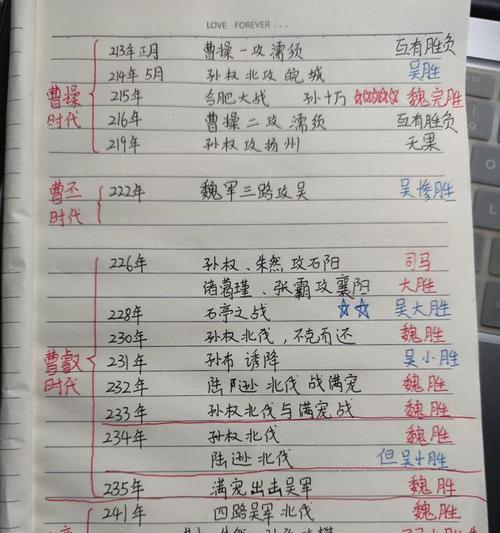 LOVE FOREVER...
曹操时代
213年正月 曹操一攻濡须 互有胜负
214年5月 孙权北攻皖城 吴胜
215年 合肥大战 孙十万 ☆☆☆☆☆ 魏完胜
216年 曹操二攻濡须 互有胜负
219年 孙权攻扬州 无果
曹丕时代
222年 魏军三路攻吴 吴惨胜
曹叡时代
226年 孙权、朱然攻石阳 司马
诸葛瑾、张霸攻襄阳 大胜
228年 石亭之战 ☆☆ 吴大胜
230年 孙权北伐,不克而还 魏胜
231年 孙布诱降 吴小胜
232年 陆逊北伐 战满宠 魏胜
233年 孙权北伐与满宠战 魏胜
234年 孙权北伐 魏胜
陆逊北伐 但吴小胜
235年 满宠出击吴军 魏胜
241年 四路吴军北伐 魏胜